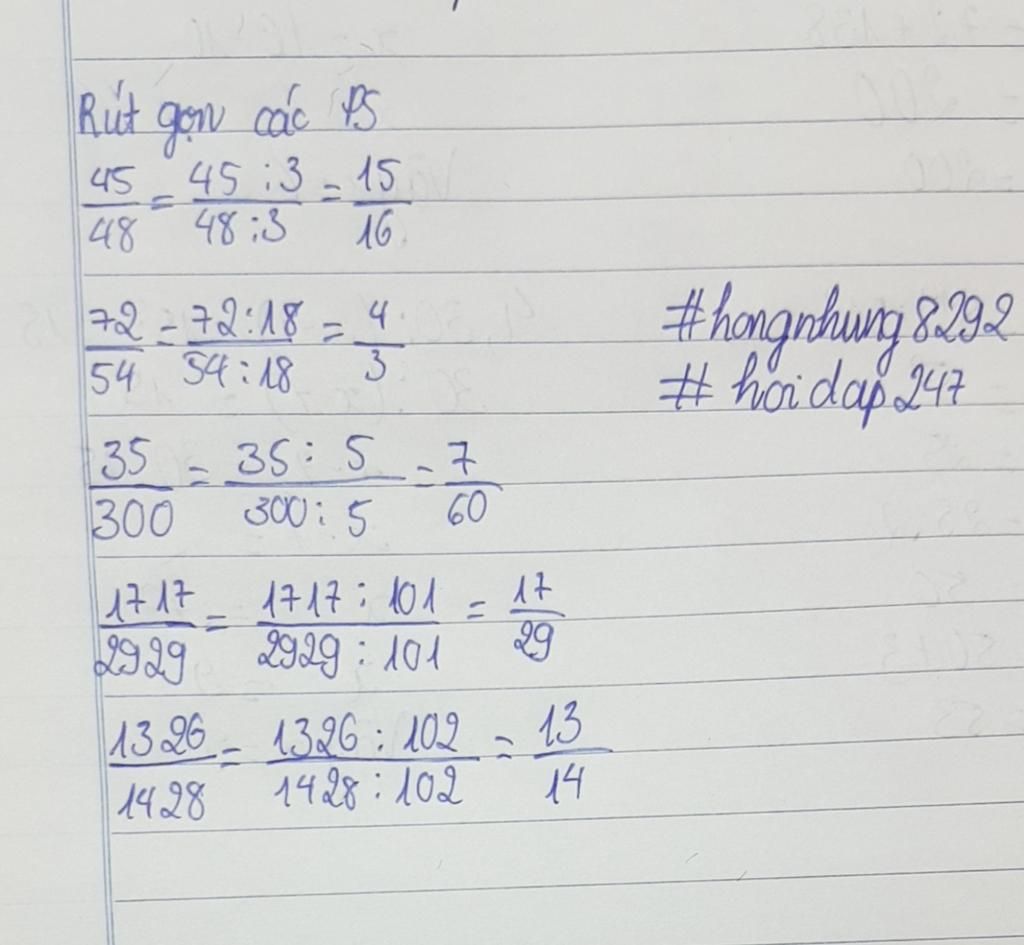 Rút gọn các PS
45/48 = 45 : 3/48 : 3 = 15/16
72/54 = 72 : 18/54 : 18 = 4/3
#hongnhung8292
# hoidap247
35/300 = 35 : 5/300 : 5 = 7/60
1717/2929 = 1717 : 101/2929 : 101 = 17/29
1326/1428 = 1326 : 102/1428 : 102 = 13/14